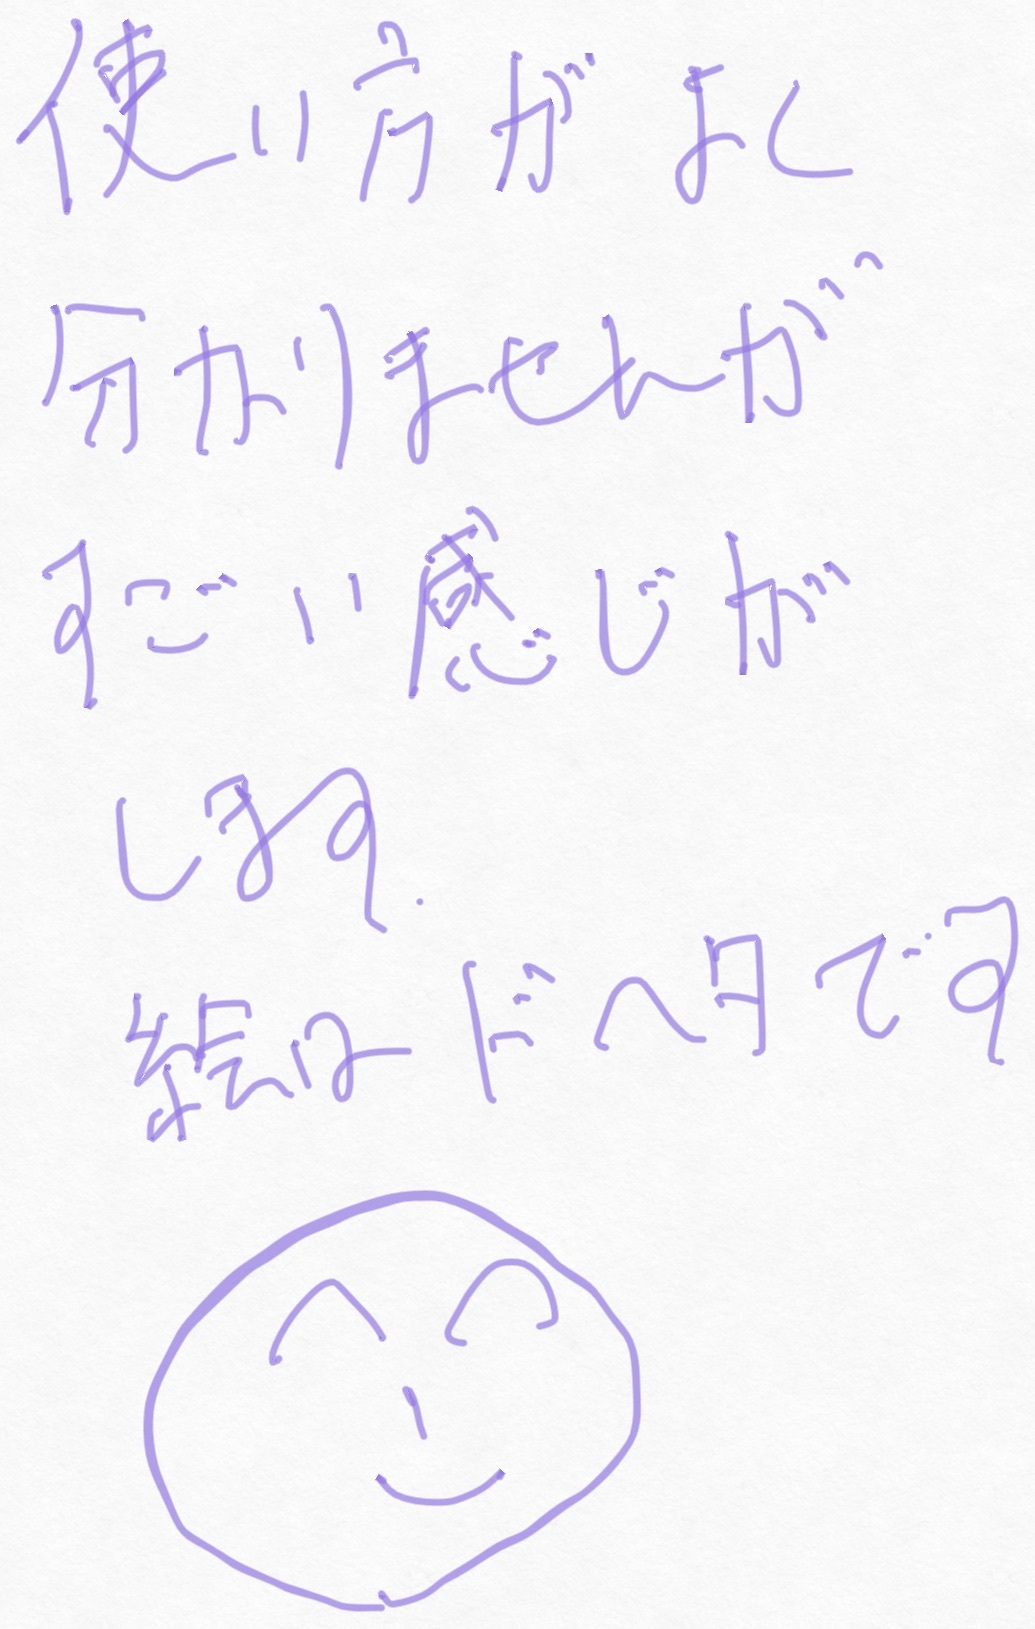 使い方がよく
分かりませんが
すごい感じが
します.
絵はドヘタです